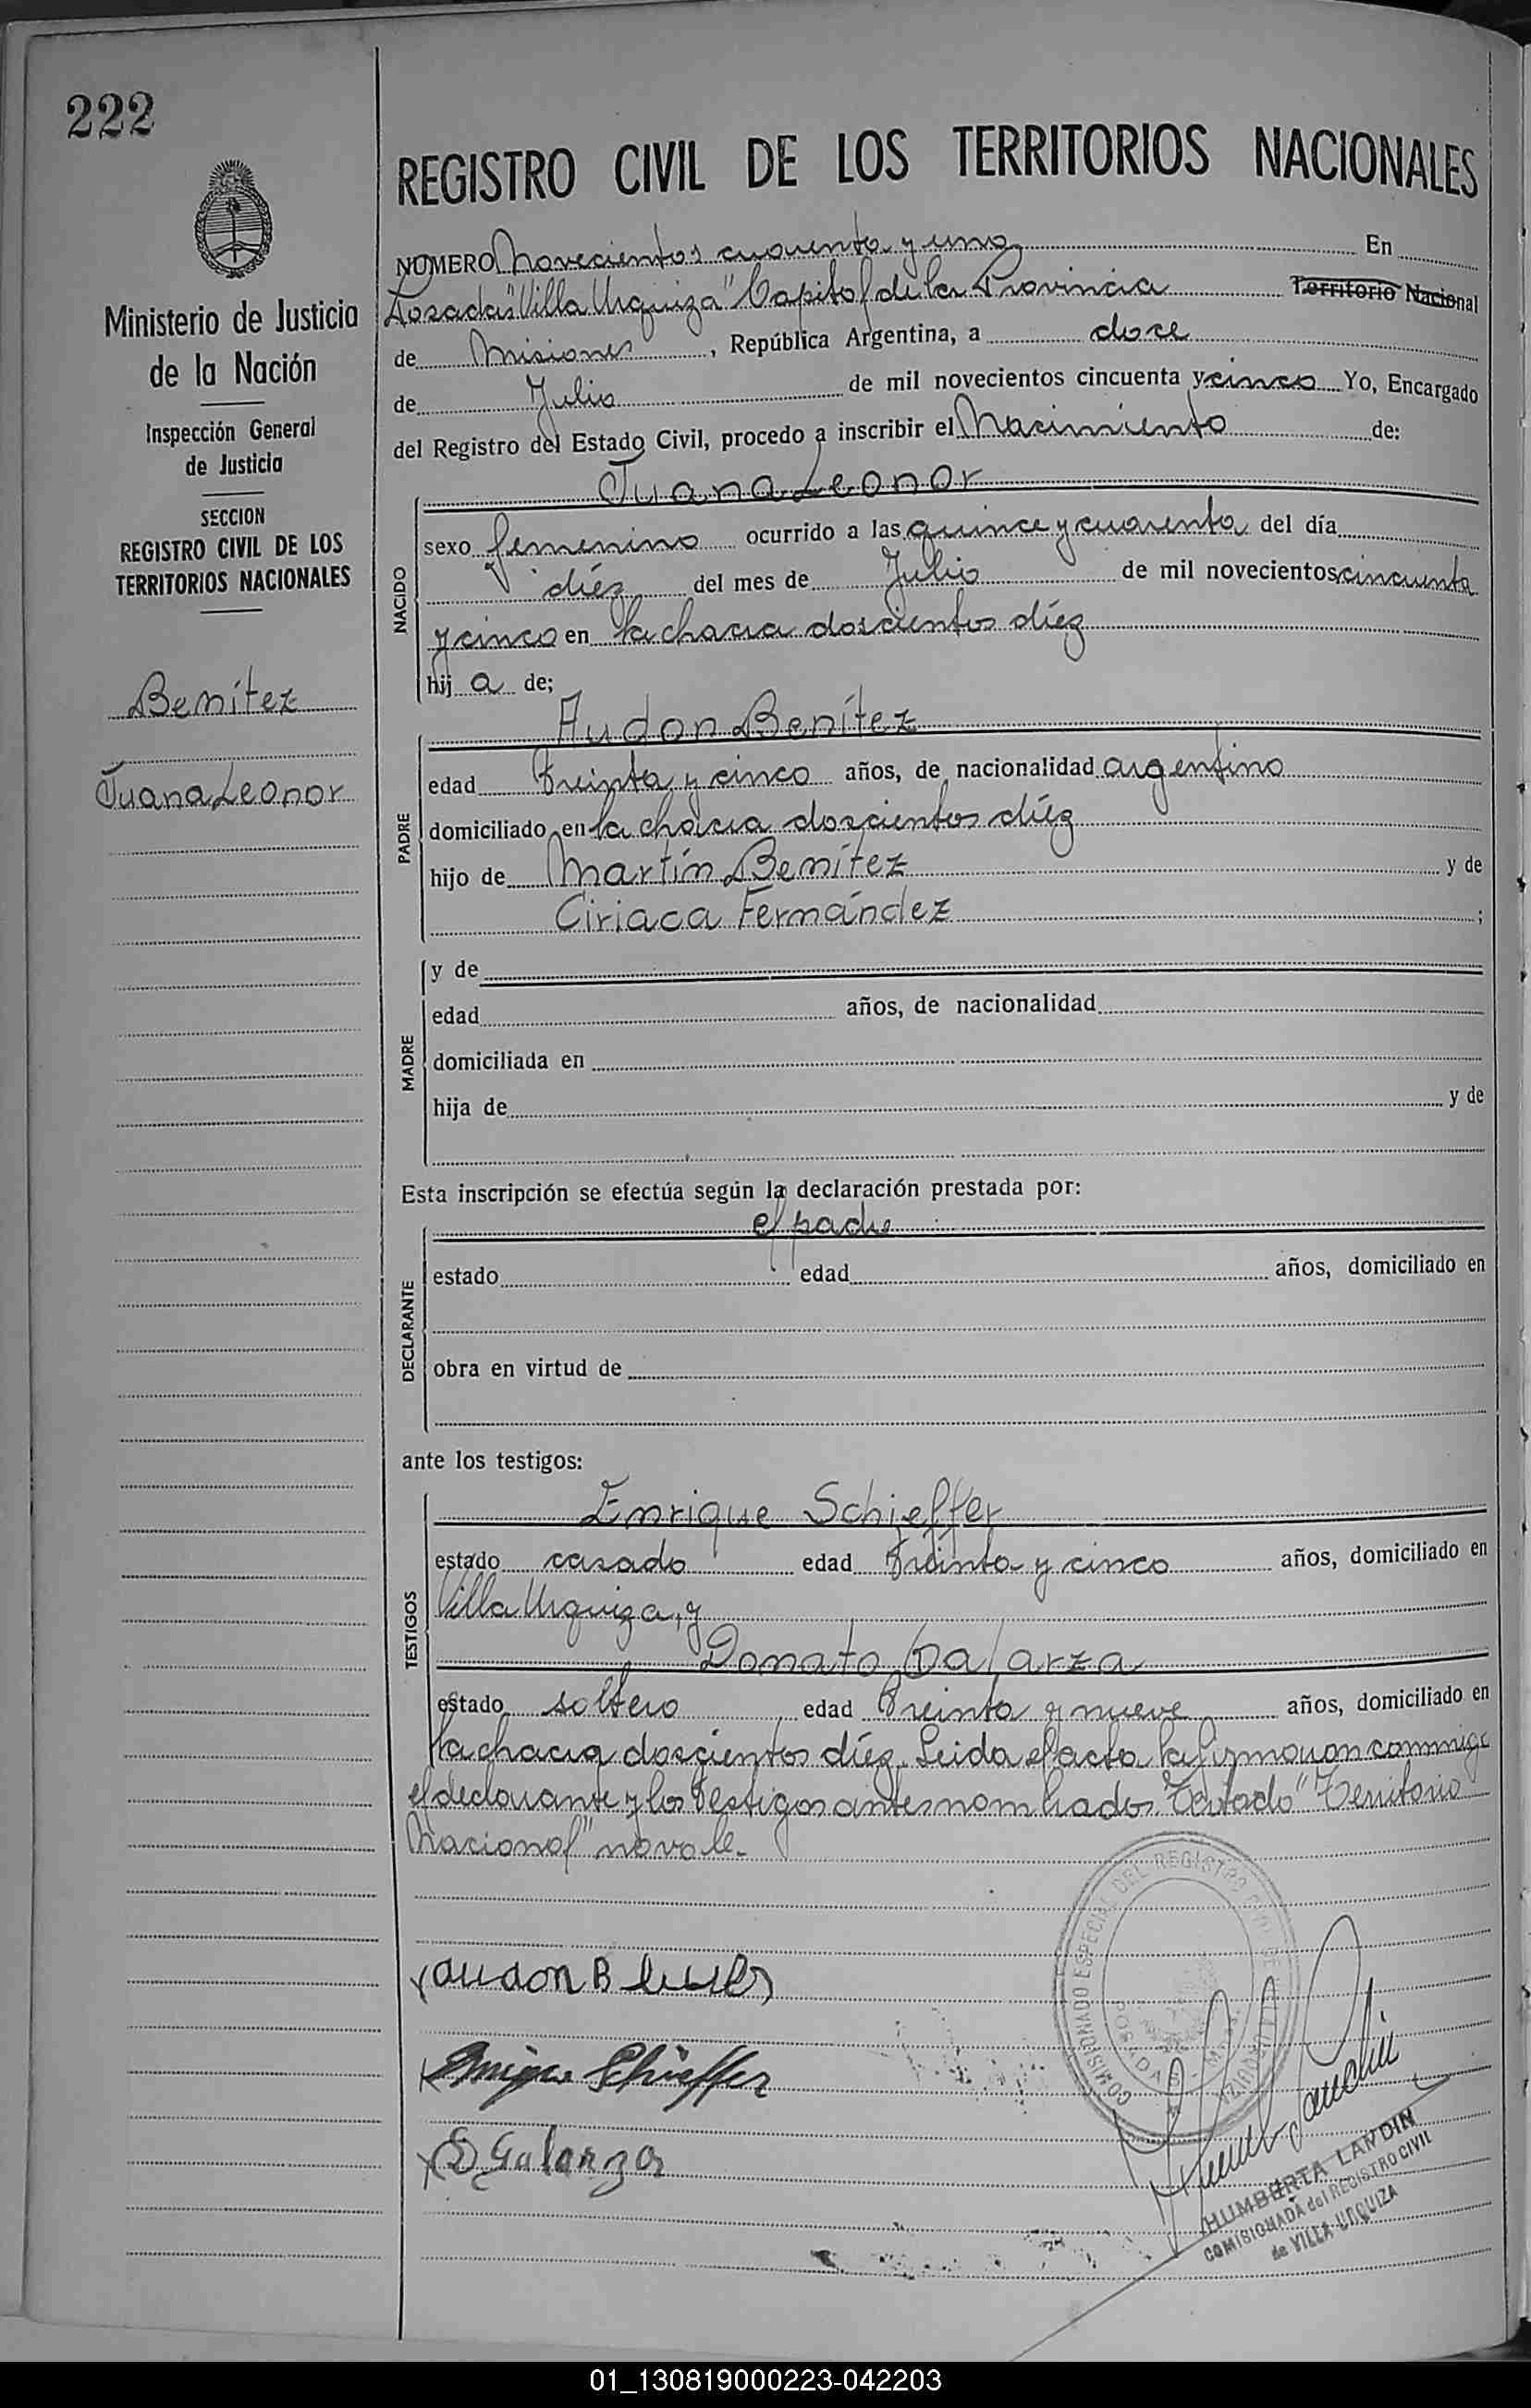 222
Ministerio de Justicia
de la Nación
Inspección General
de Justicia
SECCION
REGISTRO CIVIL DE LOS
TERRITORIOS NACIONALES
Benítez
Juana Leonor
REGISTRO CIVIL DE LOS TERRITORIOS NACIONALES
NUMERO Novecientos cuarenta y uno En
Posadas "Villa Urquiza" Capital de la Provincia Territorio Nacional
de Misiones, República Argentina, a doce
de Julio de mil novecientos cincuenta y cinco Yo, Encargado
del Registro del Estado Civil, procedo a inscribir el Nacimiento de:
Juana Leonor
NACIDO
sexo femenino ocurrido a las quince y cuarenta del día
diéz del mes de Julio de mil novecientos cincuenta
y cinco en la chacra doscientos diéz
hij a de;
Audon Benítez
PADRE
edad treinta y cinco años, de nacionalidad argentino
domiciliado en la chacra doscientos diéz
hijo de Martín Benítez y de
Ciriaca Fernández ;
MADRE
y de
edad años, de nacionalidad
domiciliada en
hija de y de
Esta inscripción se efectúa según la declaración prestada por:
el padre
DECLARANTE
estado edad años, domiciliado en
obra en virtud de
ante los testigos:
Enrique Schieffer
TESTIGOS
estado casado edad treinta y cinco años, domiciliado en
Villa Urquiza, y
Donato Galarza
estado soltero edad treinta y nueve años, domiciliado en
la chacra doscientos diéz. Leida el acta la firmaron conmigo
el declarante y los testigos antes nombrados. Testado "Territorio
Nacional" no vale.
COMISIONADO ESPECIAL DEL REGISTRO CIVIL DE VILLA URQUIZA
POSADAS
audon B
Enrique Schieffer
D Galarza
HUMBERTA LANDIN
COMISIONADA del REGISTRO CIVIL
de VILLA URQUIZA
01_130819000223-042203